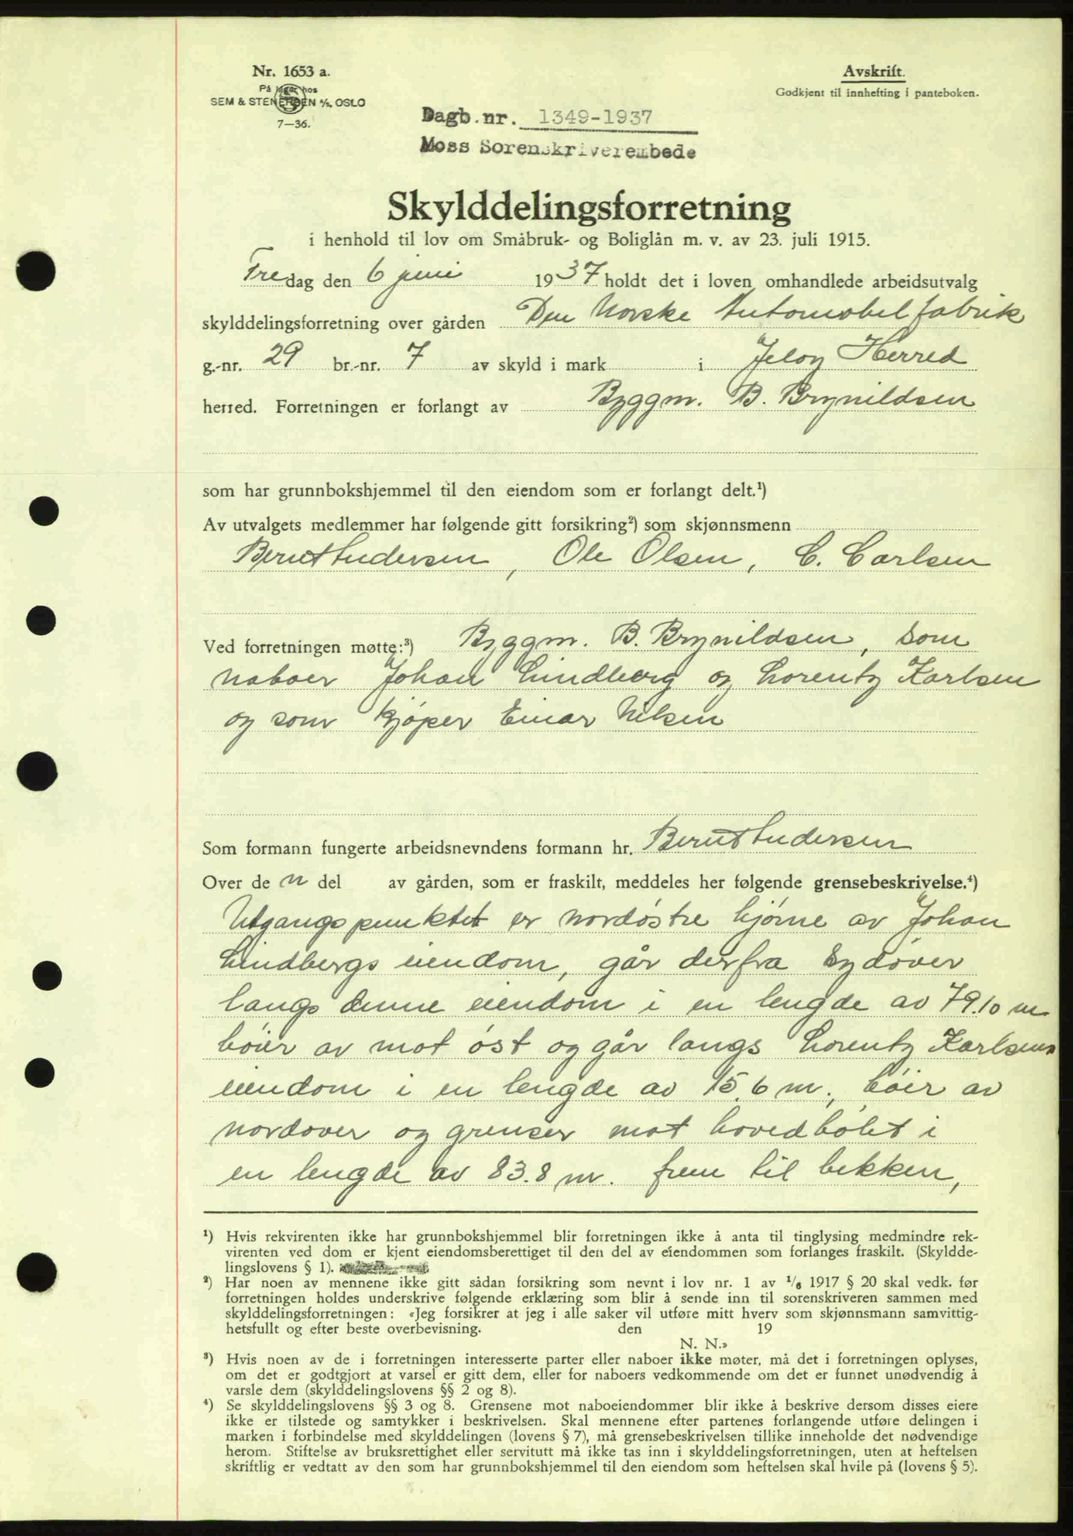 Nr. 1653 a.
På lager hos
SEM & STENERSEN A/S. OSLO
7—36.
Avskrift.
Godkjent til innhefting i panteboken.
Dagb.nr. 1349-1937
Moss Sorenskriverembede
Skylddelingsforretning
i henhold til lov om Småbruk- og Boliglån m. v. av 23. juli 1915.
Fredag den 6 juni 1937 holdt det i loven omhandlede arbeidsutvalg
skylddelingsforretning over gården Den Norske Automobilfabrik
g.-nr. 29 br.-nr. 7 av skyld i mark i Jeløy Herred
herred. Forretningen er forlangt av Byggm. B. Brynildsen
som har grunnbokshjemmel til den eiendom som er forlangt delt.¹)
Av utvalgets medlemmer har følgende gitt forsikring²) som skjønnsmenn
Bernt Andersen, Ole Olsen, C. Carlsen
Ved forretningen møtte:³) Byggm. B. Brynildsen, som
naboer Johan Lindberg og Lorentz Karlsen
og som kjøper Einar Nilsen
Som formann fungerte arbeidsnevndens formann hr. Bernt Andersen
Over de n del av gården, som er fraskilt, meddeles her følgende grensebeskrivelse.⁴)
Utgangspunktet er nordøstre hjørne av Johan
Lindbergs eiendom, går derfra sydover
langs denne eiendom i en lengde av 79.10 m
bøier av mot øst og går langs Lorentz Karlsens
eiendom i en lengde av 15.6 m., bøier av
nordover og grenser mot hovedbølet i
en lengde av 83.8 m. frem til bekken,
¹) Hvis rekvirenten ikke har grunnbokshjemmel blir forretningen ikke å anta til tinglysing medmindre rek-
virenten ved dom er kjent eiendomsberettiget til den del av eiendommen som forlanges fraskilt. (Skyldde-
lingslovens § 1).
²) Har noen av mennene ikke gitt sådan forsikring som nevnt i lov nr. 1 av 1/6 1917 § 20 skal vedk. før
forretningen holdes underskrive følgende erklæring som blir å sende inn til sorenskriveren sammen med
skylddelingsforretningen: «Jeg forsikrer at jeg i alle saker vil utføre mitt hverv som skjønnsmann samvittig-
hetsfullt og efter beste overbevisning. den 19
N. N.»
³) Hvis noen av de i forretningen interesserte parter eller naboer ikke møter, må det i forretningen oplyses,
om det er godtgjort at varsel er gitt dem, eller for naboers vedkommende om det er funnet unødvendig å
varsle dem (skylddelingslovens §§ 2 og 8).
⁴) Se skylddelingslovens §§ 3 og 8. Grensene mot naboeiendommer blir ikke å beskrive dersom disses eiere
ikke er tilstede og samtykker i beskrivelsen. Skal mennene efter partenes forlangende utføre delingen i
marken i forbindelse med skylddelingen (lovens § 7), må grensebeskrivelsen tillike inneholde det nødvendige
herom. Stiftelse av bruksrettighet eller servitutt må ikke tas inn i skylddelingsforretningen, uten at heftelsen
skriftlig er vedtatt av den som har grunnbokshjemmel til den eiendom som heftelsen skal hvile på (lovens § 5).